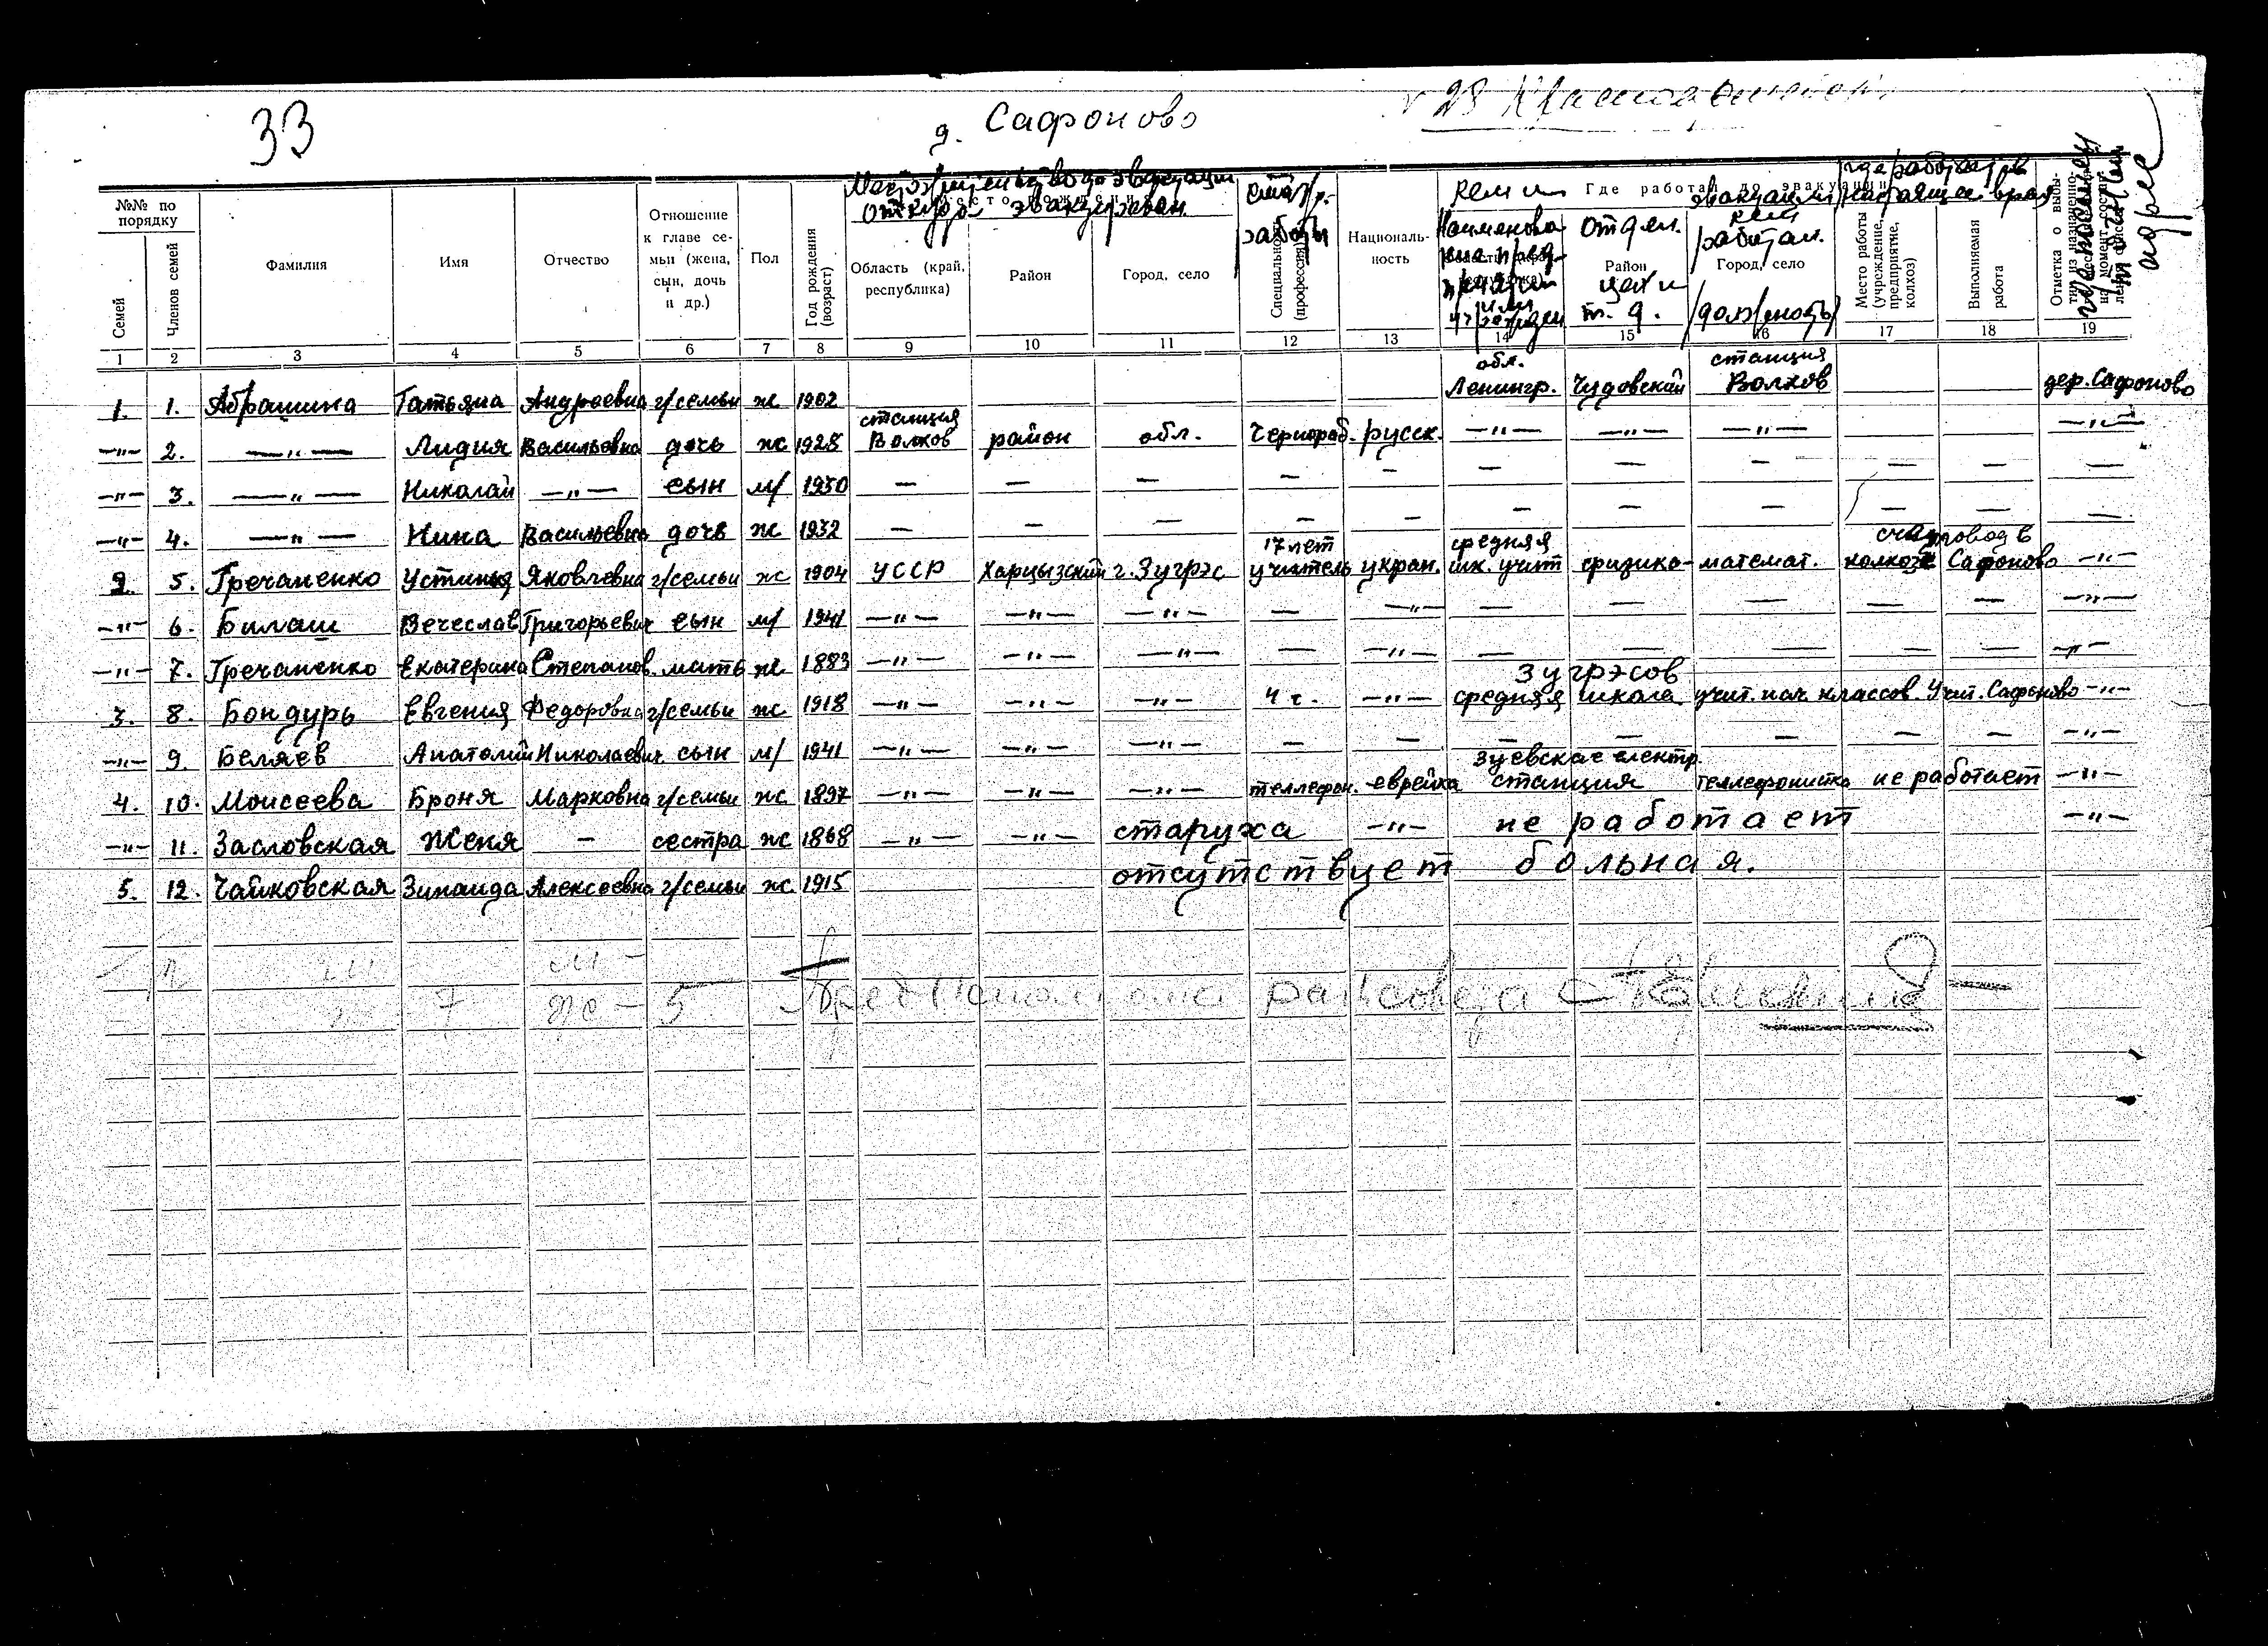 33
д. Сафоново
28
Место жительство до эвакуации
откуда эвакуирован
стаж р.
работы
кем и Где работал до эвакуации
где работает в
настоящее врем
№№ по порядку
Семей
Членов семей
Фамилия
Имя
Отчество
Отношение к главе семьи (жена, сын, дочь и др.)
Пол
Год рождения (возраст)
Область (край, республика)
Район
Город, село
Специальность (профессия)
Национальность
Наименова
отдел.
цех и
т. д.
Район
кем
работал.
Город, село
/должность/
Место работы (учреждение, предприятие, колхоз)
Выполняемая работа
Отметка о выбытии из назначенно-
адрес
1 2 3 4 5 6 7 8 9 10 11 12 13 14 15 16 17 18 19
1. 1. Абрашина Татьяна Андреевна г/семьи ж 1902 обл. Ленингр. Чудовский станция Волхов дер. Сафоново
—"— 2. —"— Лидия Васильевна дочь ж 1928 станция Волхов район обл. Чернораб. русск. —"— —"— —"— —"—
—"— 3. —"— Николай —"— сын м/ 1930 — — — — — — — — — — —
—"— 4. —"— Нина Васильевна дочь ж 1932 — — — — — — — — — — —
2. 5. Гречаненко Устинья Яковлевна г/семьи ж 1904 УССР Харцызский г. Зугрэс 17 лет учитель укран. средняя шк. учит физико-математ. счетовод в колхозе Сафоново —"—
—"— 6. Билаш Вечеслав Григорьевич сын м/ 1941 —"— —"— —"— — —"— — — — — — —"—
—"— 7. Гречаненко Екатерина Степанов. мать ж 1883 —"— —"— —"— — —"— — — — — — —"—
3. 8. Бондурь Евгения Федоровна г/семьи ж 1918 —"— —"— —"— 4 г. —"— Зугрэсов средняя школа учит. нач. классов Учит. Сафоново —"—
—"— 9. Беляев Анатолий Николаевич сын м/ 1941 —"— —"— —"— — — — — — — — —"—
4. 10. Моисеева Броня Марковна г/семьи ж 1897 —"— —"— —"— теллефон. еврейка Зуевская електр. станция теллефонистка не работает —"—
—"— 11. Засловская Женя — сестра ж 1868 —"— —"— старуха —"— не работает —"—
5. 12. Чайковская Зинаида Алексеевна г/семьи ж 1915 отсутствует больная.
м -
7 ж - 5